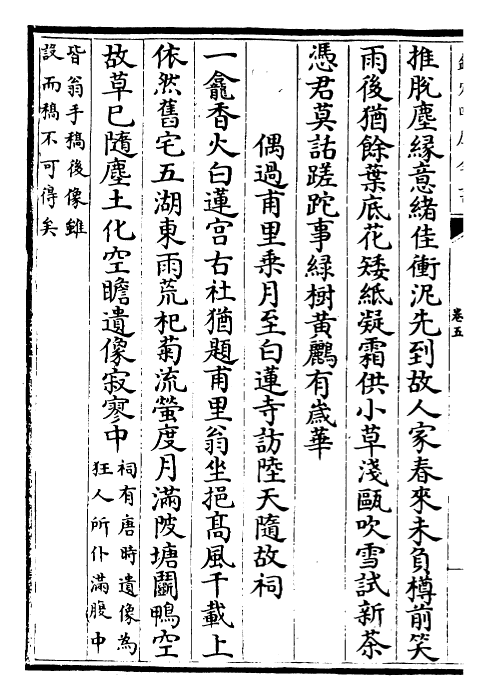 卷五
推脫塵縁意緒佳衝泥先到故人家春來未負樽前笑
雨後猶餘葉底花矮紙凝霜供小草淺甌吹雪試新茶
憑君莫話蹉跎事緑樹黃鸝有嵗華
偶過甫里乗月至白蓮寺訪陸天隨故祠
一龕香火白蓮宮古社猶題甫里翁坐挹髙風千載上
依然舊宅五湖東雨荒杞菊流螢度月滿陂塘鬭鴨空
故草已隨塵土化空瞻遺像寂寥中
祠有唐時遺像為
狂人所仆滿腹中
皆翁手稿後像雖
設而稿不可得矣